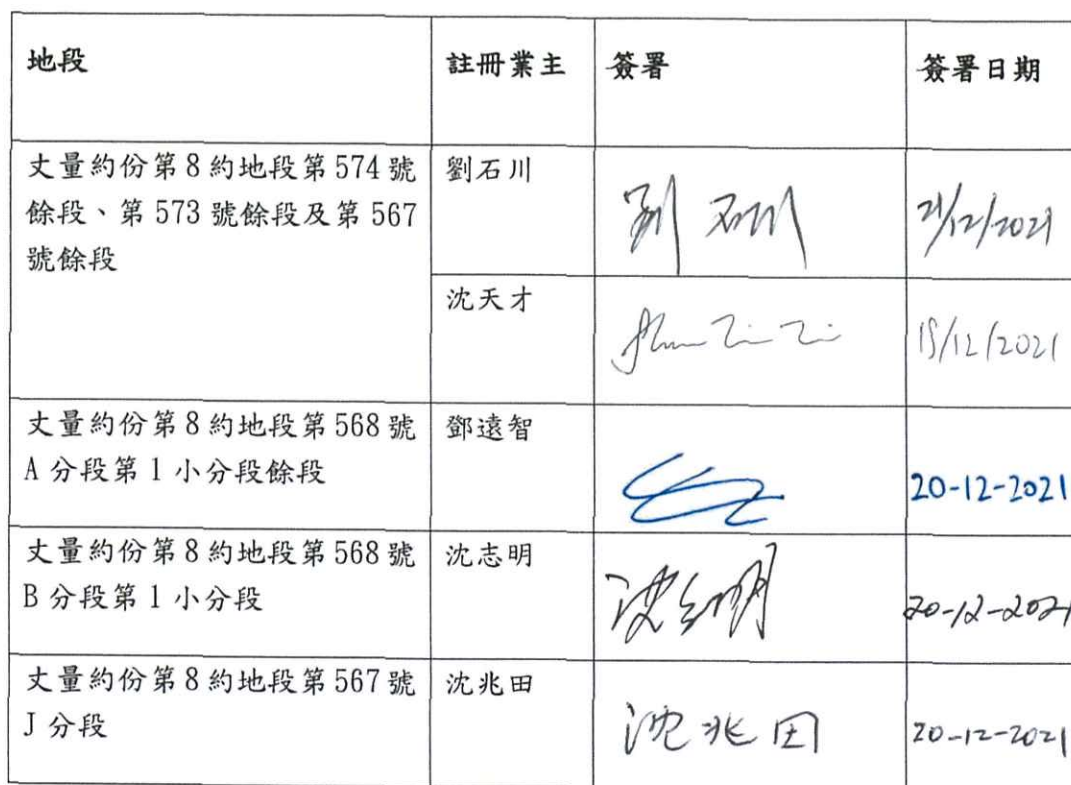 地段 註冊業主 簽署 簽署日期
丈量約份第8約地段第574號
餘段、第573號餘段及第567
號餘段
劉石川 劉石川 21/12/2021
沈天才 19/12/2021
丈量約份第8約地段第568號
A分段第1小分段餘段
鄧遠智 20-12-2021
丈量約份第8約地段第568
B分段第1小分段
沈志明 20-12-2021
丈量約份第8約地段第567號
J分段
沈兆田 沈兆田 20-12-2021